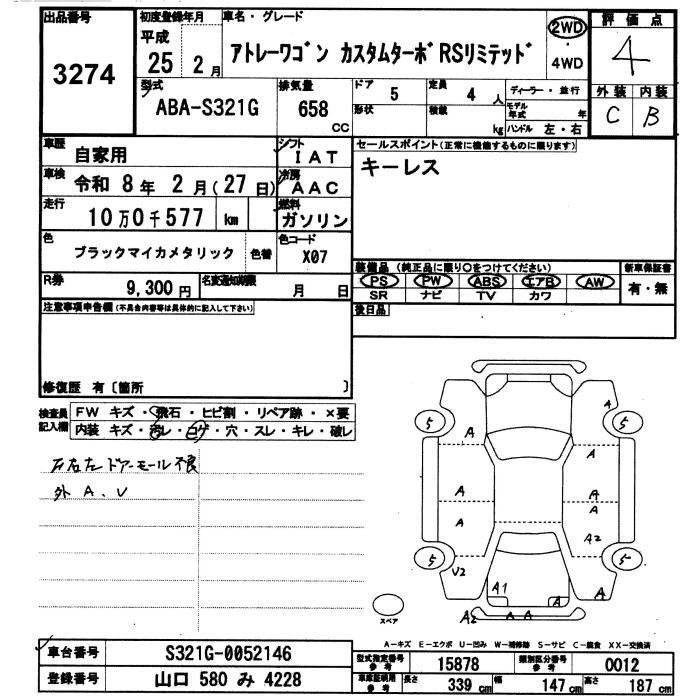 出品番号 3274
初度登録年月 平成 25 2月
車名・グレード アトレーワゴン カスタムターボRSリミテッド
2WD ・ 4WD
評価点 4
外装 内装
C B
型式 ABA-S321G
排気量 658 CC
ドア 5
形状
定員 4 人
積載 kg
ディーラー・並行
モデル年式 年
ハンドル 左・右
車歴 自家用
シフト IAT
車検 令和 8年 2月(27日)
冷房 AAC
走行 10万0千577 km
燃料 ガソリン
色 ブラックマイカメタリック 色替
色コード X07
R券 9,300円
名変通知期限 月 日
セールスポイント(正常に機能するものに限ります)
キーレス
装備品(純正品に限り○をつけてください)
PS PW ABS エアB AW
SR ナビ TV カワ
新車保証書 有・無
後日品
注意事項申告欄(不具合内容等は具体的に記入して下さい)
修復歴 有〔箇所 〕
検査員記入欄
FW キズ・飛石・ヒビ割・リペア跡・×要
内装 キズ・汚レ・コゲ・穴・スレ・キレ・破レ
左右左ドアーモール不良
外 A、V
5 A 5
A A
A A
A A
A2
5 5
V2 A1 A A
A2 A A
スペア
A-キズ E-エクボ U-凹み W-補修跡 S-サビ C-腐食 XX-交換済
車台番号 S321G-0052146
登録番号 山口 580 み 4228
型式指定番号参考 15878
類別区分番号参考 0012
車庫証明用参考 長さ 339 cm 幅 147 cm 高さ 187 cm